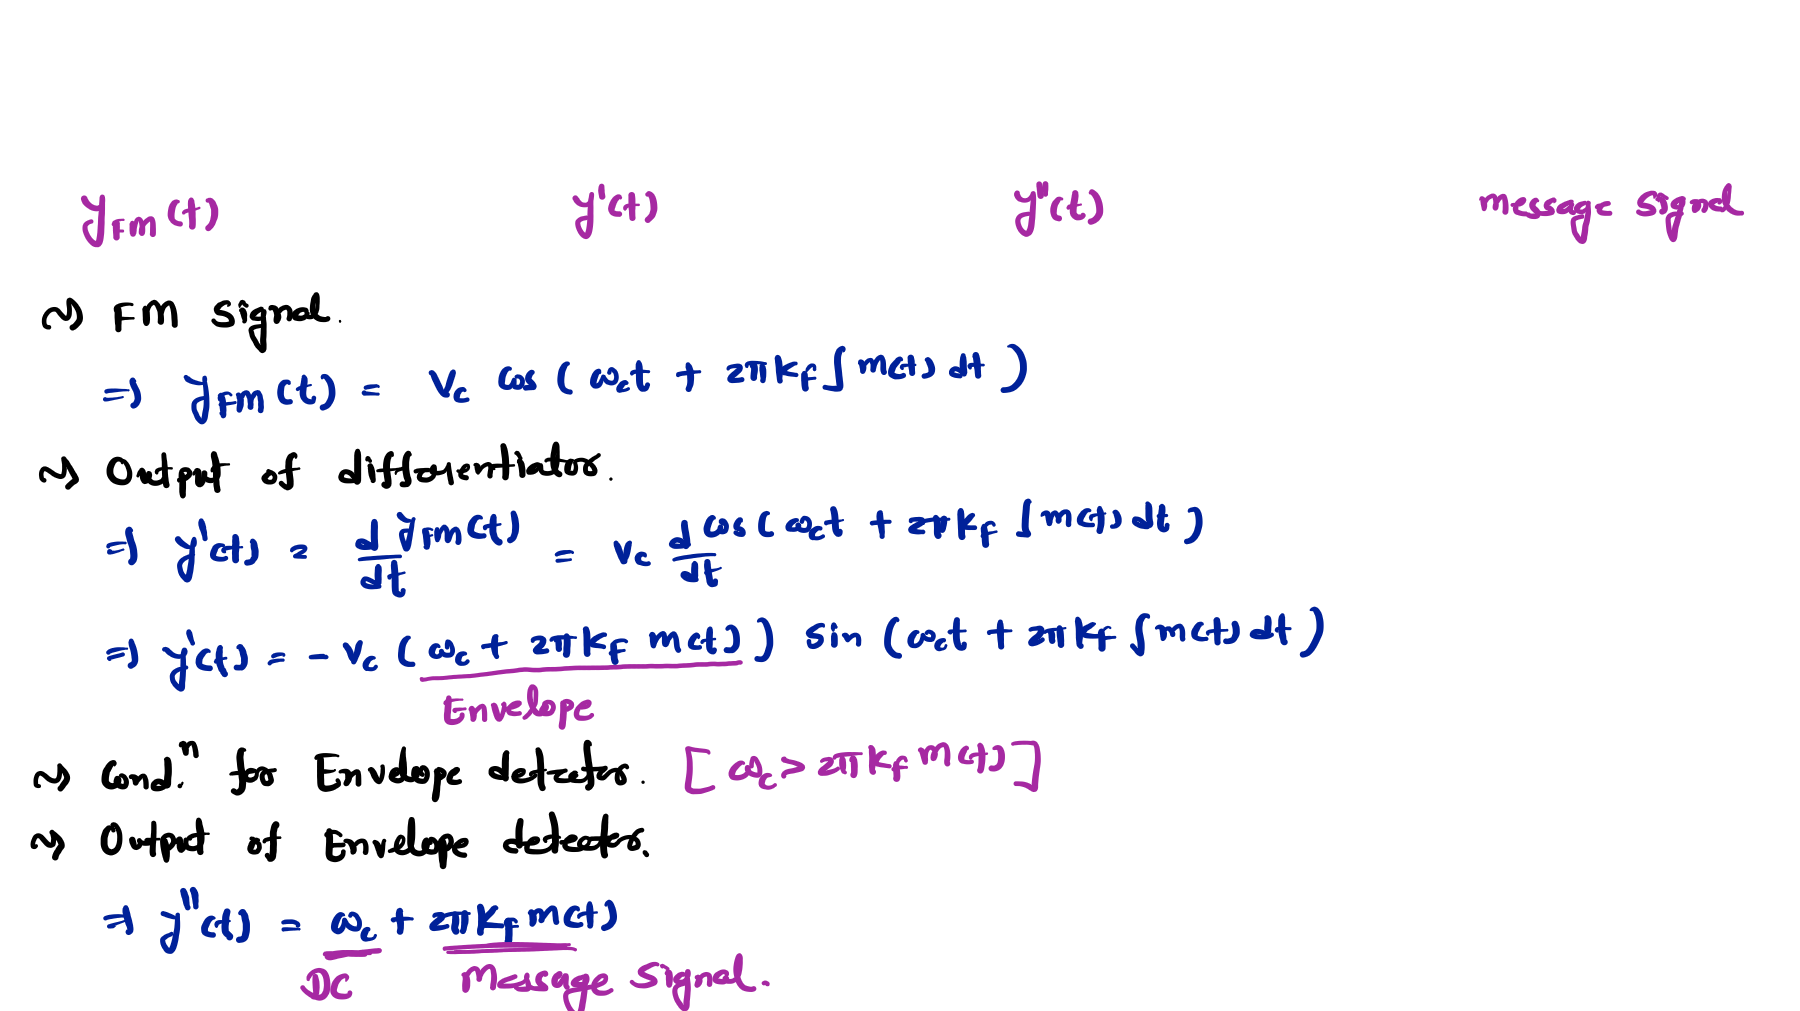 y_FM(t) y'(t) y''(t) message signal
~> FM Signal.
=> y_FM(t) = V_c cos(ω_c t + 2πk_f ∫m(t) dt)
~> Output of differentiator.
=> y'(t) = d/dt y_FM(t) = V_c d/dt cos(ω_c t + 2πk_f ∫m(t) dt)
=> y'(t) = - V_c (ω_c + 2πk_f m(t)) sin(ω_c t + 2πk_f ∫m(t) dt)
Envelope
~> Cond.ⁿ for Envelope detector. [ω_c > 2πk_f m(t)]
~> Output of Envelope detector.
=> y''(t) = ω_c + 2πk_f m(t)
DC Message Signal.